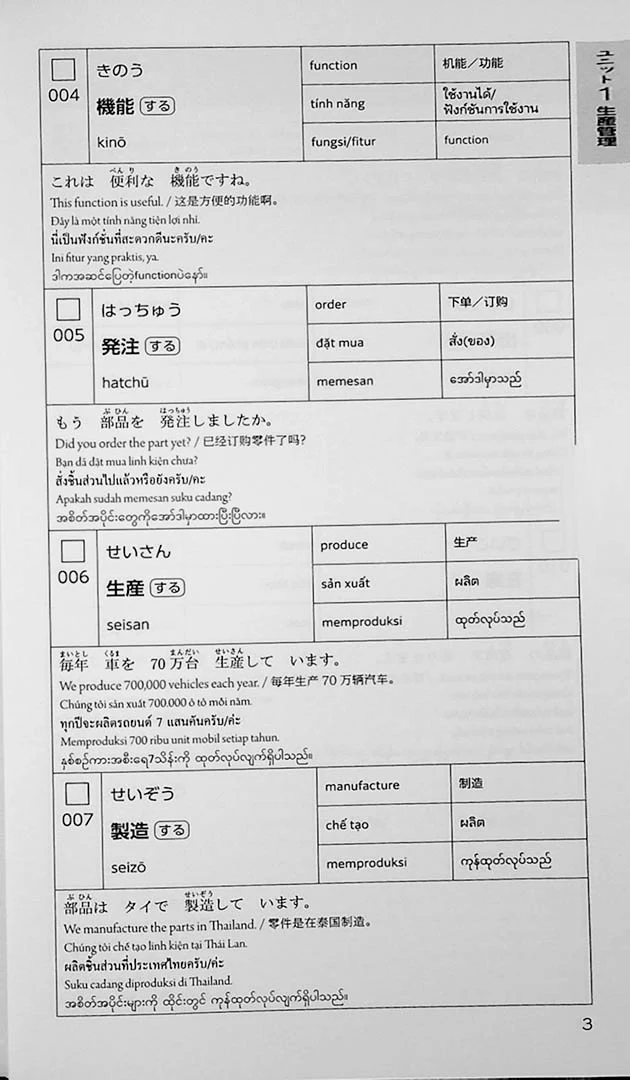 ユニット1 生産管理
004
きのう
機能 する
kinō
function
机能／功能
tính năng
ใช้งานได้/
ฟังก์ชันการใช้งาน
fungsi/fitur
function
べんり きのう
これは 便利な 機能ですね。
This function is useful. / 这是方便的功能啊。
Đây là một tính năng tiện lợi nhỉ.
นี่เป็นฟังก์ชั่นที่สะดวกดีนะครับ/คะ
Ini fitur yang praktis, ya.
ဒါကအဆင်ပြေတဲ့functionပဲနော်။
005
はっちゅう
発注 する
hatchū
order
下单／订购
đặt mua
สั่ง(ของ)
memesan
အော်ဒါမှာသည်
ぶひん はっちゅう
もう 部品を 発注しましたか。
Did you order the part yet? / 已经订购零件了吗?
Bạn đã đặt mua linh kiện chưa?
สั่งชิ้นส่วนไปแล้วหรือยังครับ/คะ
Apakah sudah memesan suku cadang?
အစိတ်အပိုင်းတွေကိုအော်ဒါမှာထားပြီးပြီလား။
006
せいさん
生産 する
seisan
produce
生产
sản xuất
ผลิต
memproduksi
ထုတ်လုပ်သည်
まいとし くるま まんだい せいさん
毎年 車を 70万台 生産して います。
We produce 700,000 vehicles each year. / 每年生产 70 万辆汽车。
Chúng tôi sản xuất 700.000 ô tô mỗi năm.
ทุกปีจะผลิตรถยนต์ 7 แสนคันครับ/ค่ะ
Memproduksi 700 ribu unit mobil setiap tahun.
နှစ်စဉ်ကားအစီးရေ7သိန်းကို ထုတ်လုပ်လျက်ရှိပါသည်။
007
せいぞう
製造 する
seizō
manufacture
制造
chế tạo
ผลิต
memproduksi
ကုန်ထုတ်လုပ်သည်
ぶひん せいぞう
部品は タイで 製造して います。
We manufacture the parts in Thailand. / 零件是在泰国制造。
Chúng tôi chế tạo linh kiện tại Thái Lan.
ผลิตชิ้นส่วนที่ประเทศไทยครับ/ค่ะ
Suku cadang diproduksi di Thailand.
အစိတ်အပိုင်းများကို ထိုင်းတွင် ကုန်ထုတ်လုပ်လျက်ရှိပါသည်။
3